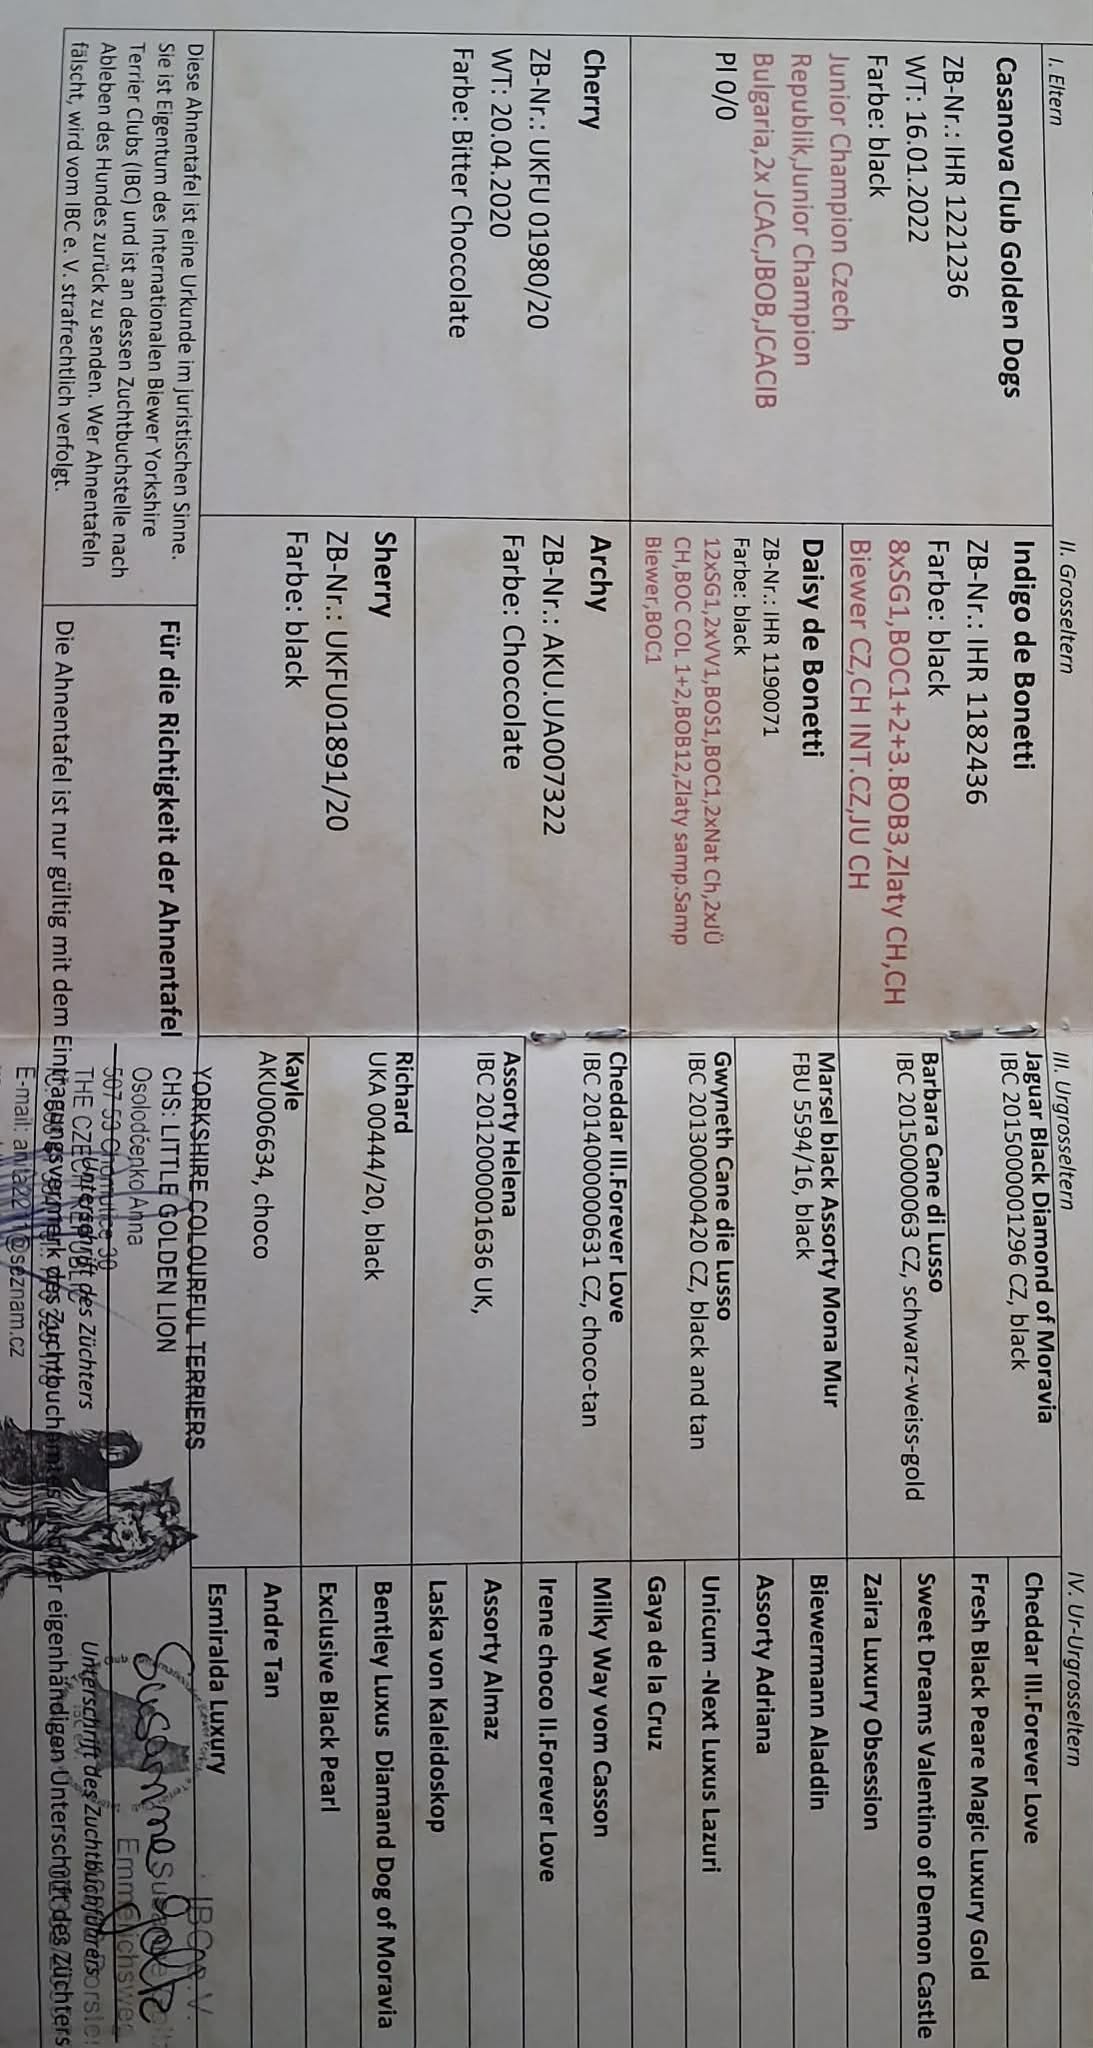 I. Eltern
Casanova Club Golden Dogs
ZB-Nr.: IHR 1221236
WT: 16.01.2022
Farbe: black
Junior Champion Czech
Republik,Junior Champion
Bulgaria,2x JCAC,JBOB,JCACIB
Pl 0/0
Cherry
ZB-Nr.: UKFU 01980/20
WT: 20.04.2020
Farbe: Bitter Choccolate
II. Grosseltern
Indigo de Bonetti
ZB-Nr.: IHR 1182436
Farbe: black
8xSG1,BOC1+2+3.BOB3,Zlaty CH,CH
Biewer CZ,CH INT.CZ,JU CH
Daisy de Bonetti
ZB-Nr.: IHR 1190071
Farbe: black
12xSG1,2xVV1,BOS1,BOC1,2xNat Ch,2xJÜ
CH,BOC COL 1+2,BOB12,Zlaty samp.Samp
Biewer,BOC1
Archy
ZB-Nr.: AKU.UA007322
Farbe: Choccolate
Sherry
ZB-Nr.: UKFU01891/20
Farbe: black
III. Urgrosseltern
Jaguar Black Diamond of Moravia
IBC 2015000001296 CZ, black
Barbara Cane di Lusso
IBC 20150000063 CZ, schwarz-weiss-gold
Marsel black Assorty Mona Mur
FBU 5594/16, black
Gwyneth Cane die Lusso
IBC 20130000420 CZ, black and tan
Cheddar III.Forever Love
IBC 20140000000631 CZ, choco-tan
Assorty Helena
IBC 2012000001636 UK,
Richard
UKA 00444/20, black
Kayle
AKU006634, choco
IV. Ur-Urgrosseltern
Cheddar III.Forever Love
Fresh Black Peare Magic Luxury Gold
Sweet Dreams Valentino of Demon Castle
Zaira Luxury Obsession
Biewermann Aladdin
Assorty Adriana
Unicum -Next Luxus Lazuri
Gaya de la Cruz
Milky Way vom Casson
Irene choco II.Forever Love
Assorty Almaz
Laska von Kaleidoskop
Bentley Luxus Diamand Dog of Moravia
Exclusive Black Pearl
Andre Tan
Esmiralda Luxury
Diese Ahnentafel ist eine Urkunde im juristischen Sinne.
Sie ist Eigentum des Internationalen Biewer Yorkshire
Terrier Clubs (IBC) und ist an dessen Zuchtbuchstelle nach
Ableben des Hundes zurück zu senden. Wer Ahnentafeln
fälscht, wird vom IBC e. V. strafrechtlich verfolgt.
Für die Richtigkeit der Ahnentafel
YORKSHIRE COLOURFUL TERRIERS
CHS: LITTLE GOLDEN LION
Osolodčenko Anna
507 53 Chomutice 30
THE CZECH REPUBLIC
E-mail: anita2211@seznam.cz
Unterschrift des Züchters
Unterschrift des Zuchtbuchführers
Die Ahnentafel ist nur gültig mit dem Eintragungsvermerk des Zuchtbuchamtes und der eigenhändigen Unterschrift des Züchters